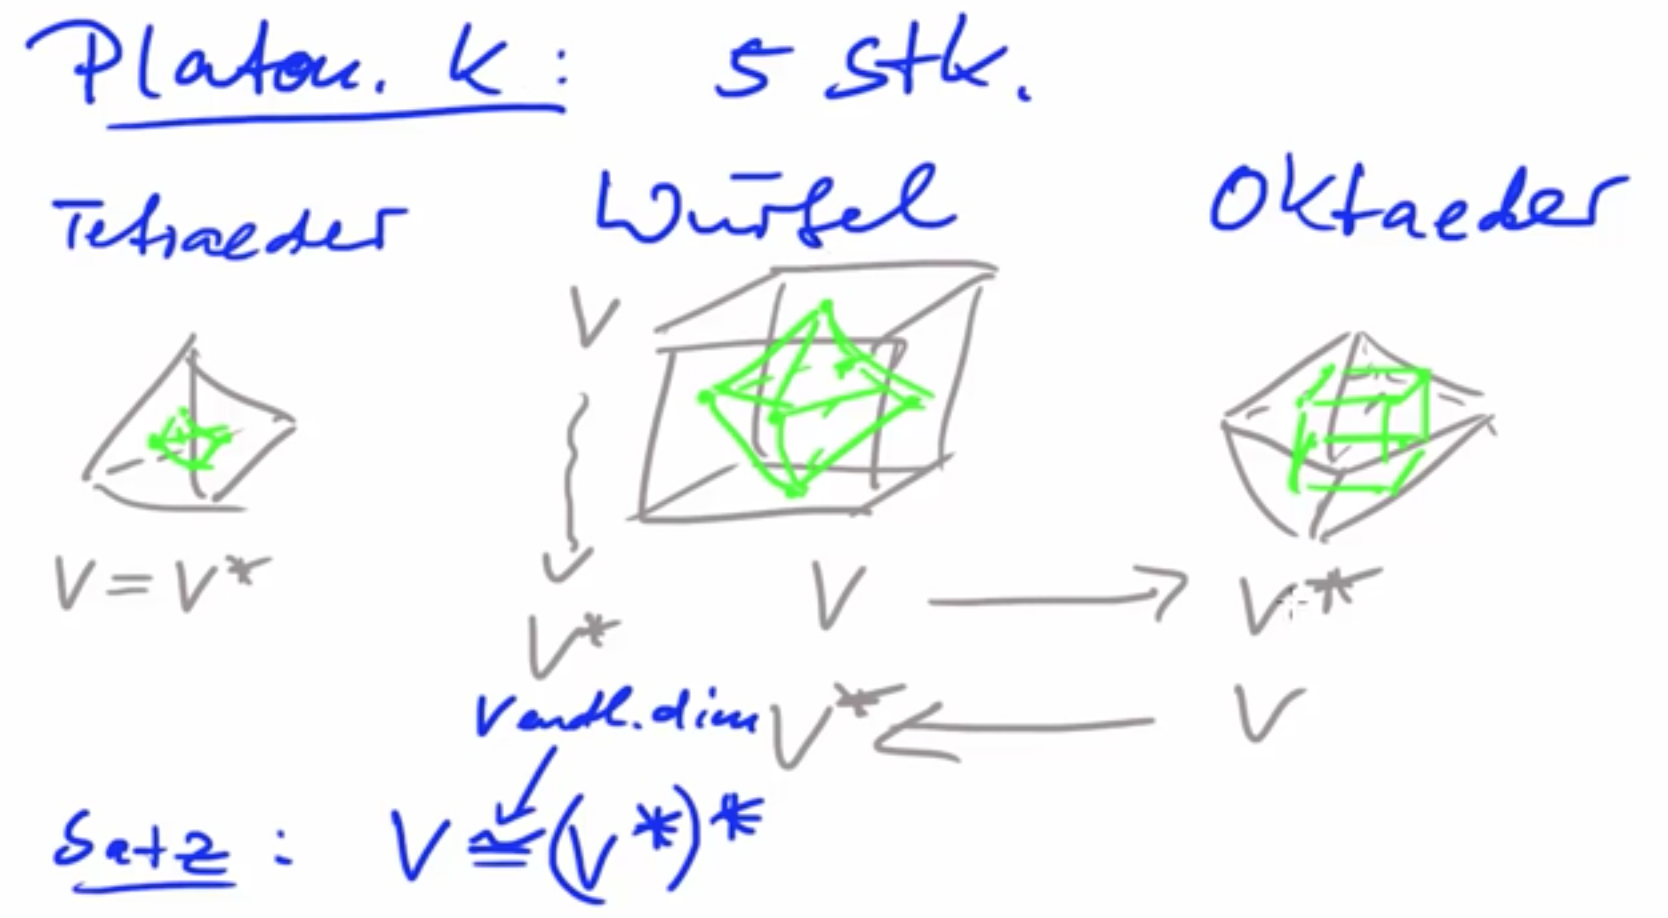 Platon. K: 5 Stk.
Tetraeder Würfel Oktaeder
V
V = V*
V*
V → V*
V endl. dim
V* ← V
Satz: V ≅ (V*)*